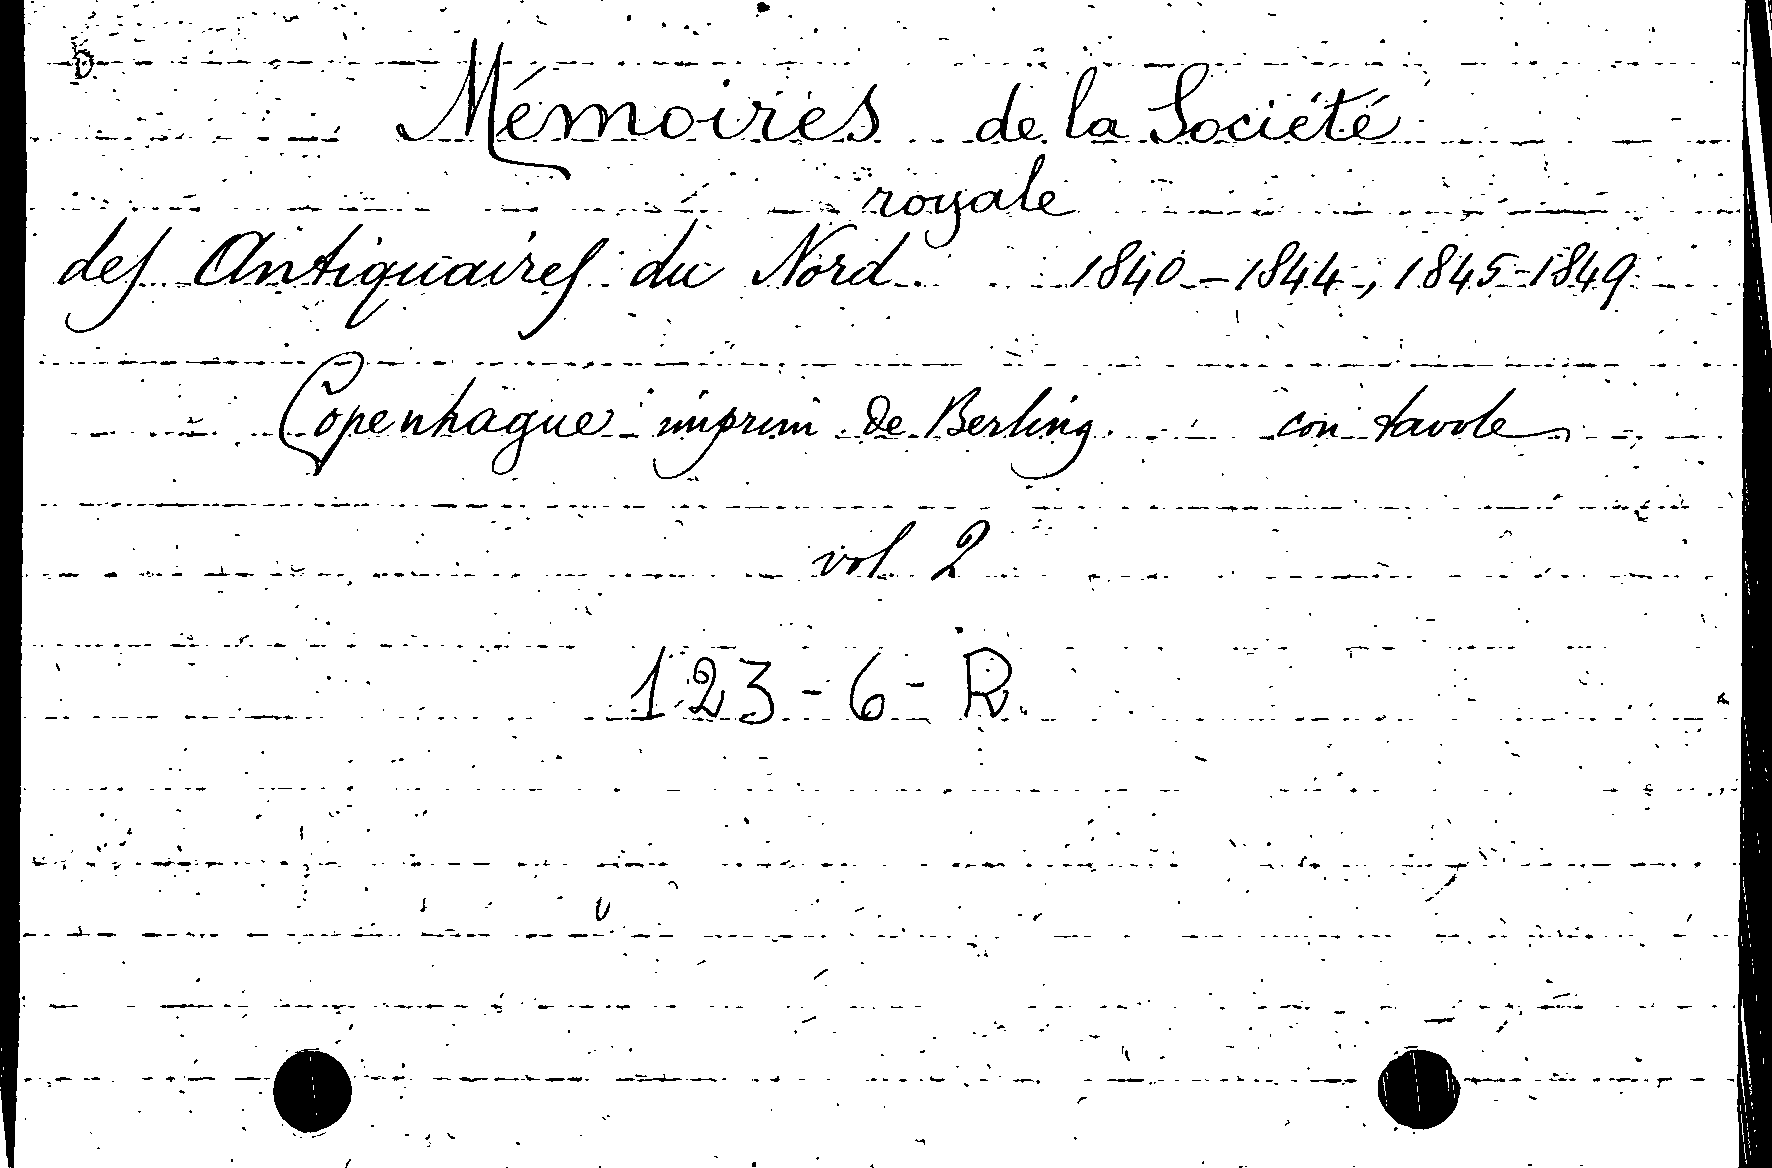 Mémoires de la Société
royale
des Antiquaires du Nord 1840-1844, 1845-1849
Copenhague imprim de Berling con tavole
vol. 2
123-6-R.